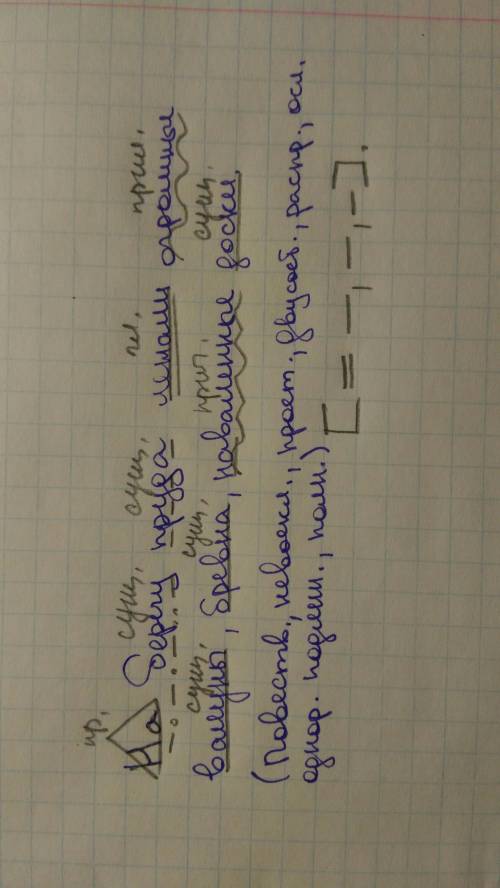 пр. сущ. сущ. гл. прил.
На берегу пруда лежали огромные
сущ. сущ. прич. сущ.
валуны, бревна, поваленные доски.
(Повеств., невоскл., прост., двусост., распр., осл.
однор. подлеж., полн.) [= —, —, —].